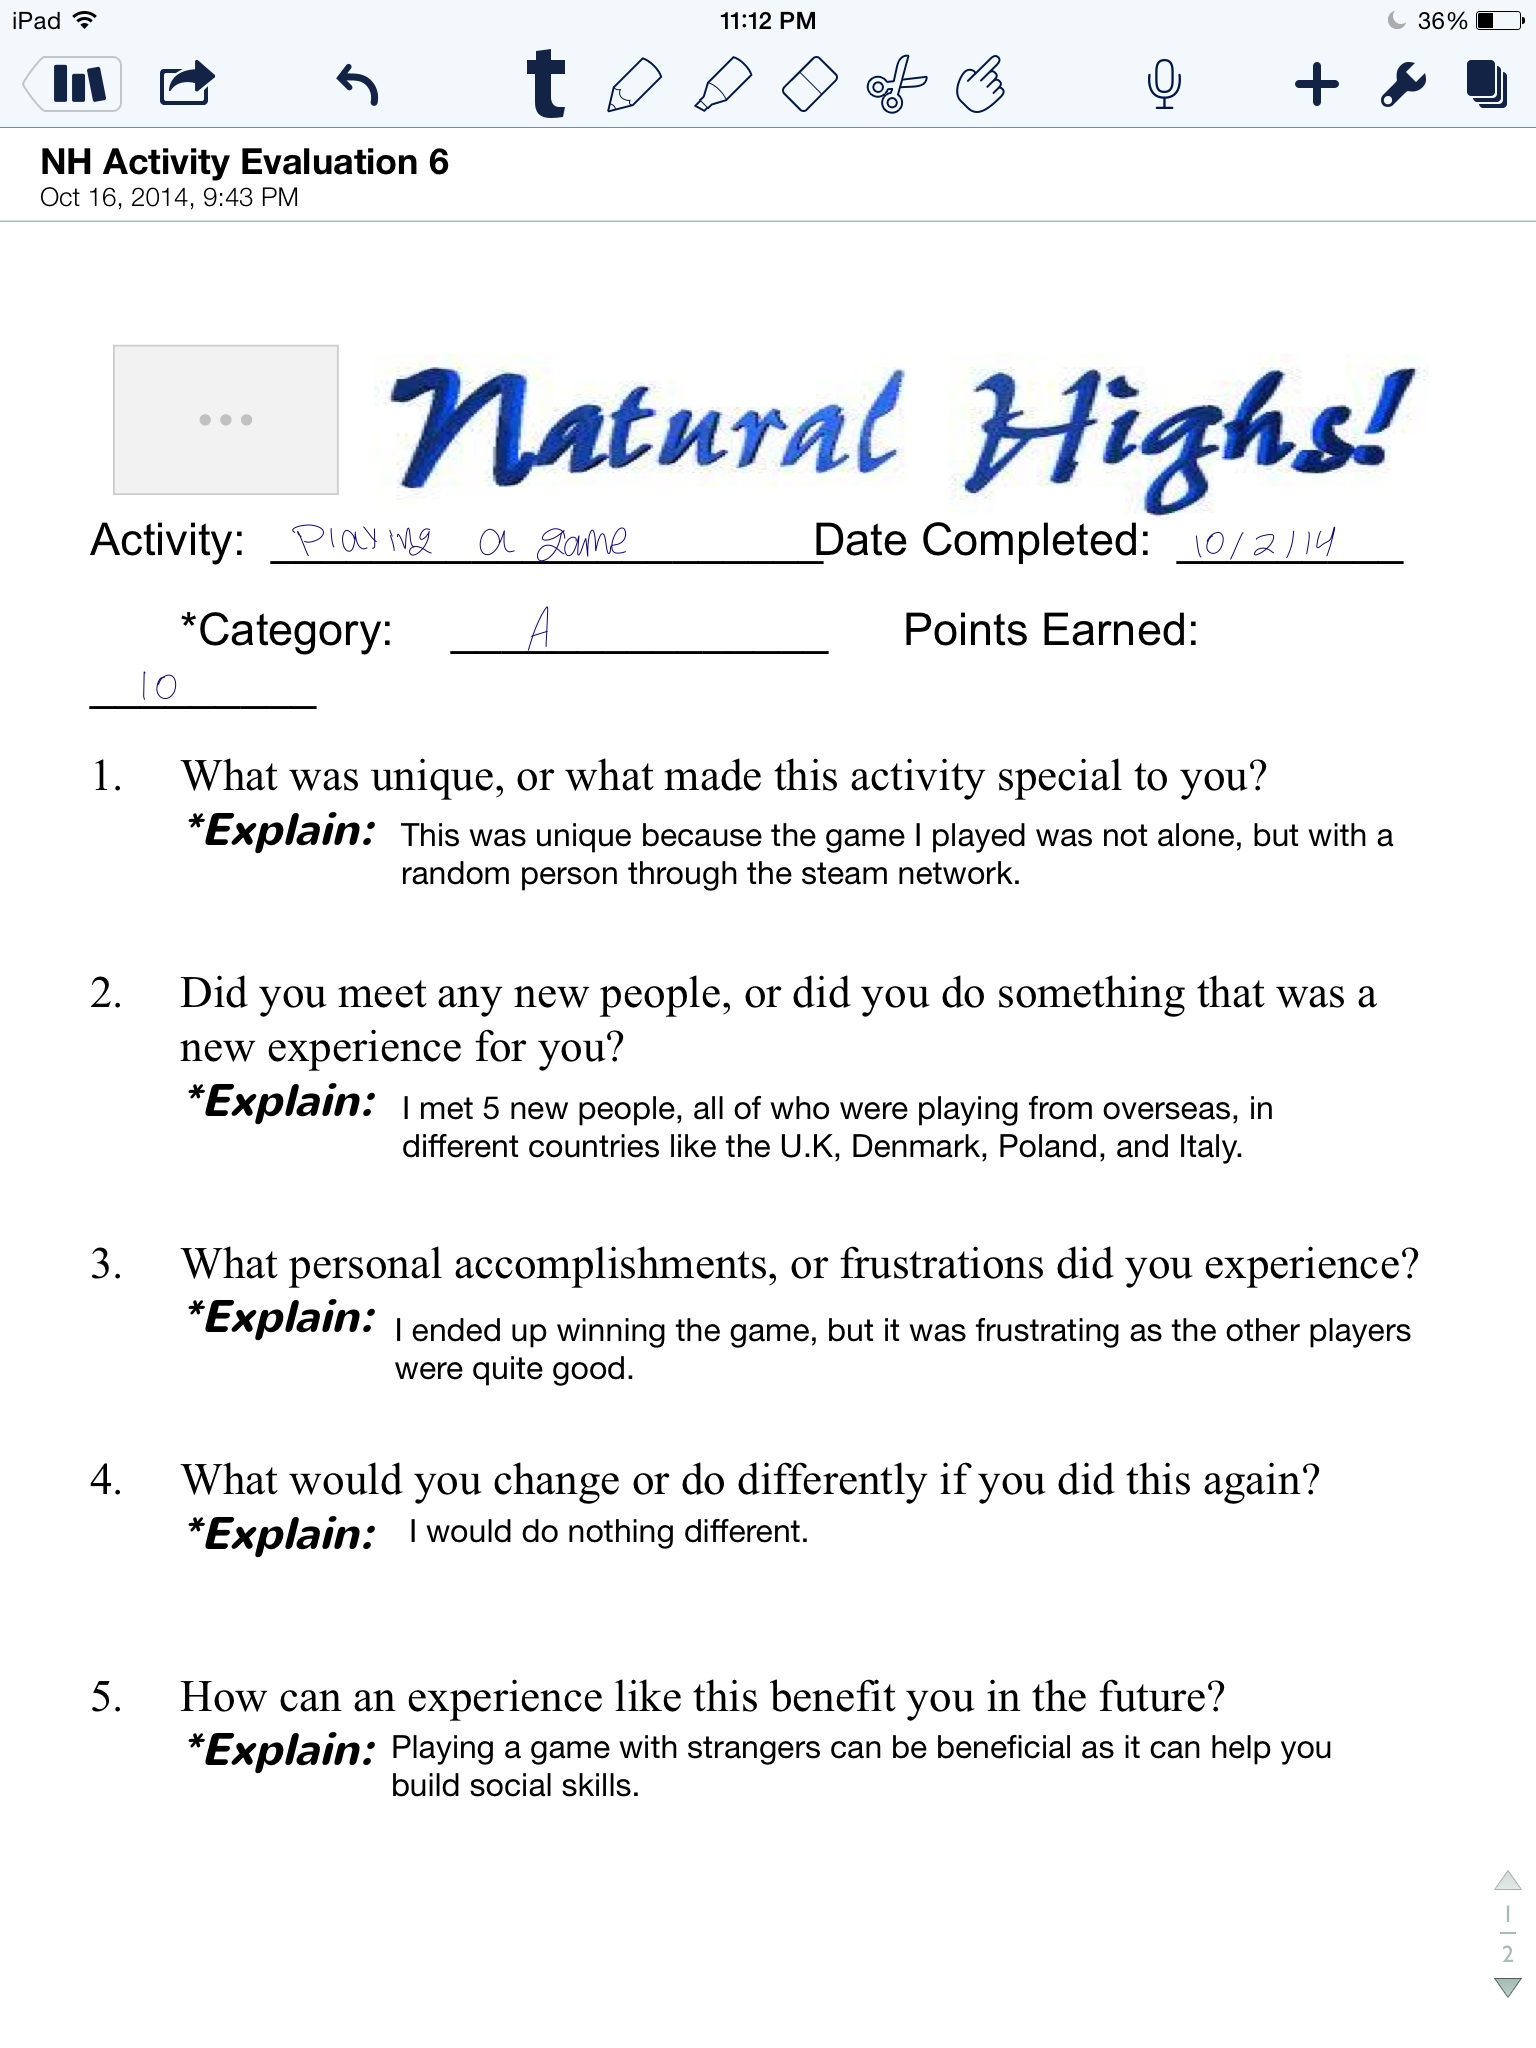 iPad 11:12 PM 36%
t
NH Activity Evaluation 6
Oct 16, 2014, 9:43 PM
Natural Highs!
Activity: Playing a game Date Completed: 10/2/14
*Category: A Points Earned:
10
1. What was unique, or what made this activity special to you?
*Explain: This was unique because the game I played was not alone, but with a
random person through the steam network.
2. Did you meet any new people, or did you do something that was a
new experience for you?
*Explain: I met 5 new people, all of who were playing from overseas, in
different countries like the U.K, Denmark, Poland, and Italy.
3. What personal accomplishments, or frustrations did you experience?
*Explain: I ended up winning the game, but it was frustrating as the other players
were quite good.
4. What would you change or do differently if you did this again?
*Explain: I would do nothing different.
5. How can an experience like this benefit you in the future?
*Explain: Playing a game with strangers can be beneficial as it can help you
build social skills.
1
2